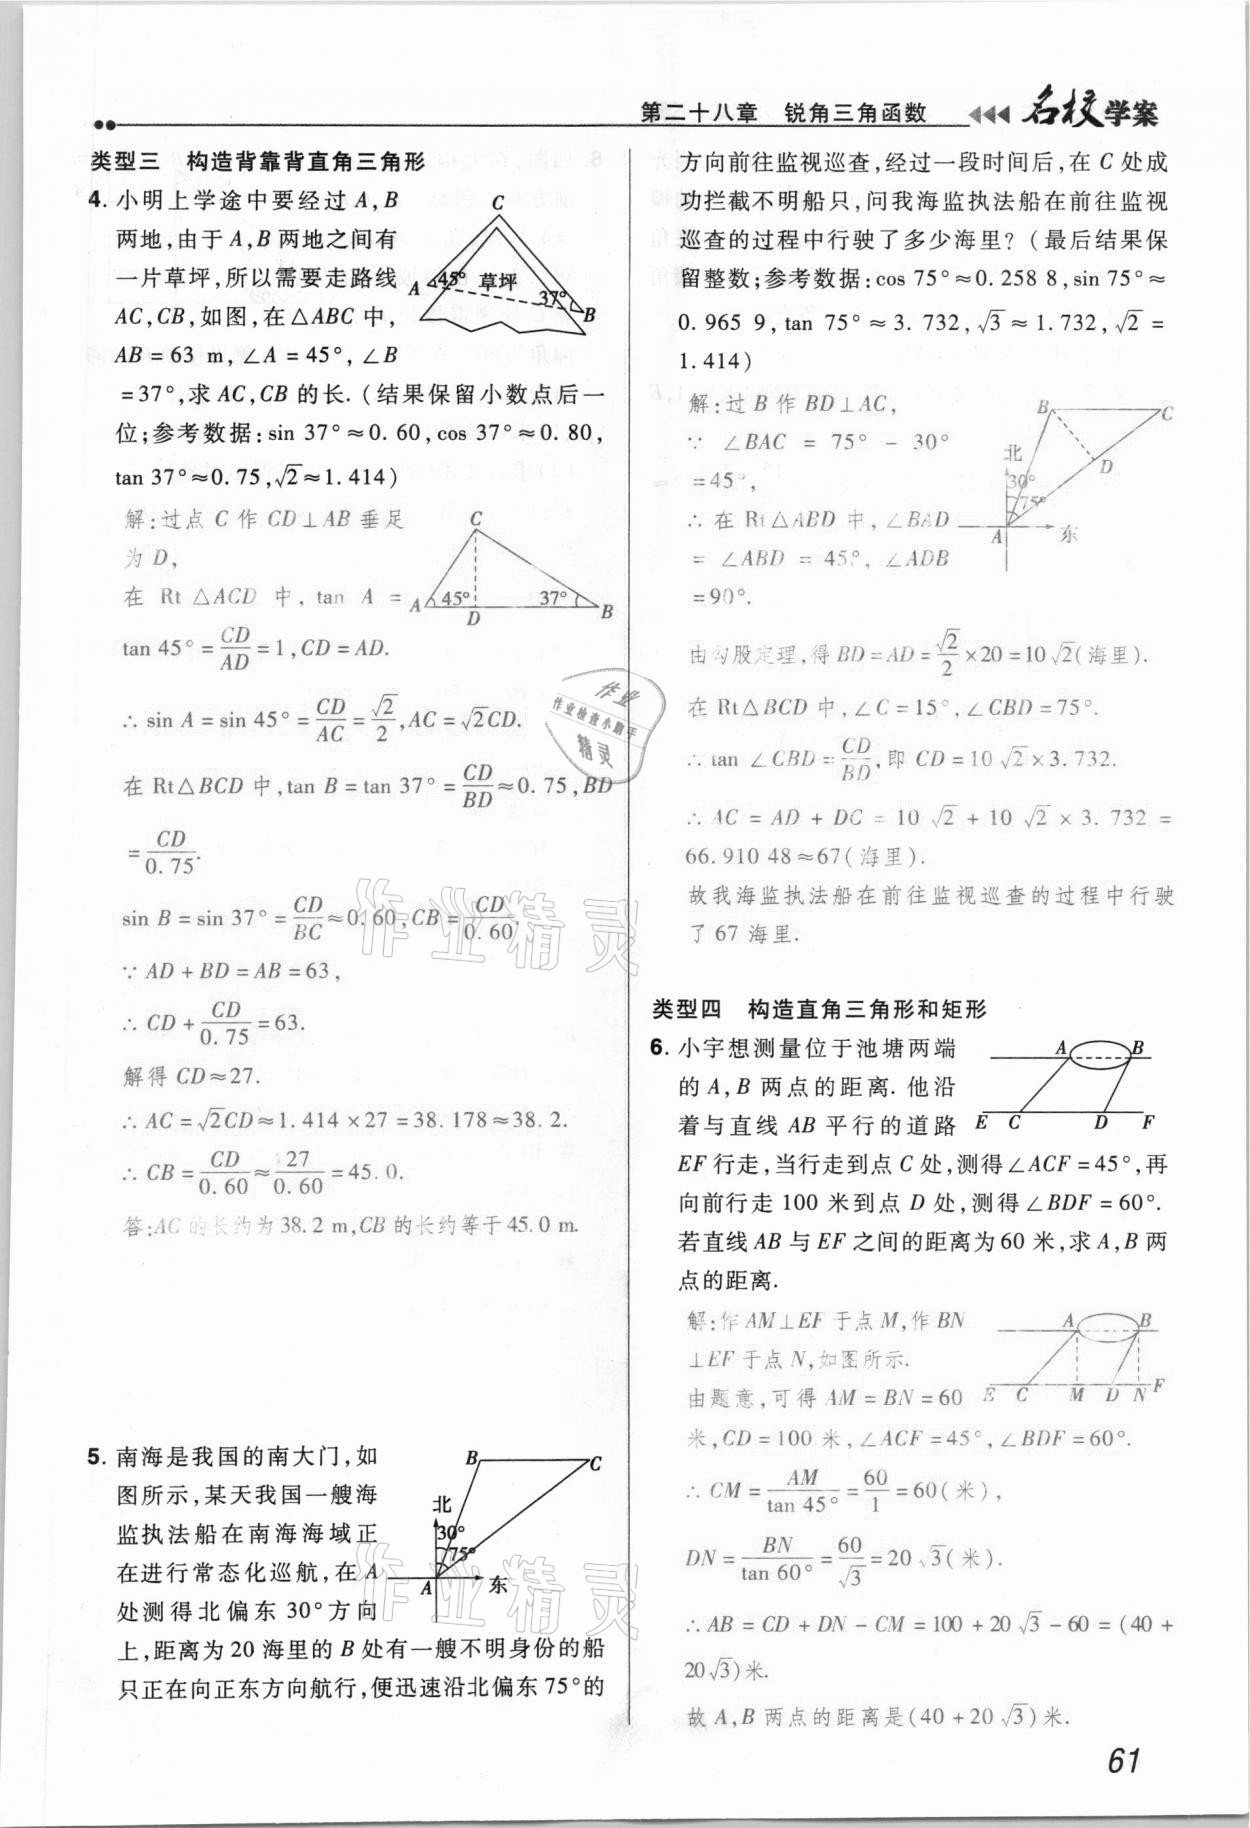 第二十八章 锐角三角函数 名校学案
类型三 构造背靠背直角三角形
4. 小明上学途中要经过 A,B
两地,由于 A,B 两地之间有
一片草坪,所以需要走路线
AC,CB,如图,在△ABC 中,
AB=63 m,∠A=45°,∠B
=37°,求 AC,CB 的长.(结果保留小数点后一
位;参考数据:sin 37°≈0.60,cos 37°≈0.80,
tan 37°≈0.75,√2≈1.414)
C
A 45° 草坪 37° B
解:过点 C 作 CD⊥AB 垂足
为 D,
在 Rt △ACD 中, tan A =
tan 45°=CD/AD=1,CD=AD.
C
A 45° 37° B
D
∴ sin A=sin 45°=CD/AC=√2/2,AC=√2CD.
在 Rt△BCD 中,tan B=tan 37°=CD/BD≈0.75,BD
=CD/0.75.
sin B=sin 37°=CD/BC≈0.60,CB=CD/0.60,
∵ AD+BD=AB=63,
∴ CD+CD/0.75=63.
解得 CD≈27.
∴ AC=√2CD≈1.414×27=38.178≈38.2.
∴ CB=CD/0.60≈27/0.60=45.0.
答:AC 的长约为 38.2 m,CB 的长约等于 45.0 m.
5. 南海是我国的南大门,如
图所示,某天我国一艘海
监执法船在南海海域正
在进行常态化巡航,在 A
处测得北偏东 30°方向
上,距离为 20 海里的 B 处有一艘不明身份的船
只正在向正东方向航行,便迅速沿北偏东 75°的
B C
北
30°
75°
A 东
方向前往监视巡查,经过一段时间后,在 C 处成
功拦截不明船只,问我海监执法船在前往监视
巡查的过程中行驶了多少海里?(最后结果保
留整数;参考数据:cos 75°≈0.258 8,sin 75°≈
0.965 9,tan 75°≈3.732,√3≈1.732,√2=
1.414)
解:过 B 作 BD⊥AC,
∵ ∠BAC = 75° - 30°
=45°,
∴ 在 Rt△ABD 中,∠BAD
= ∠ABD = 45°, ∠ADB
=90°.
B C
北
D
30°
75°
A 东
由勾股定理,得 BD=AD=√2/2×20=10√2(海里).
在 Rt△BCD 中,∠C=15°,∠CBD=75°.
∴ tan ∠CBD=CD/BD,即 CD=10√2×3.732.
∴ AC = AD + DC = 10√2 + 10√2 × 3.732 =
66.910 48≈67(海里).
故我海监执法船在前往监视巡查的过程中行驶
了 67 海里.
类型四 构造直角三角形和矩形
6. 小宇想测量位于池塘两端
的 A,B 两点的距离.他沿
着与直线 AB 平行的道路
EF 行走,当行走到点 C 处,测得∠ACF=45°,再
向前行走 100 米到点 D 处,测得∠BDF=60°.
若直线 AB 与 EF 之间的距离为 60 米,求 A,B 两
点的距离.
A B
E C D F
解:作 AM⊥EF 于点 M,作 BN
⊥EF 于点 N,如图所示.
由题意,可得 AM=BN=60
米,CD=100 米,∠ACF=45°,∠BDF=60°.
A B
E C M D N F
∴ CM=AM/tan 45°=60/1=60(米),
DN=BN/tan 60°=60/√3=20√3(米).
∴ AB=CD+DN-CM=100+20√3-60=(40+
20√3)米.
故 A,B 两点的距离是(40+20√3)米.
61
作业
作业检查小助手
精灵
作业精灵
作业精灵